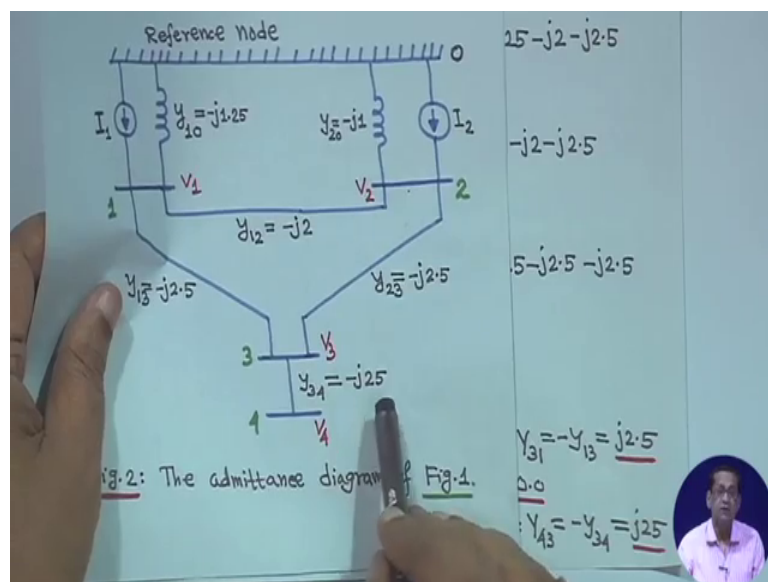 Reference node
0
I₁
y₁₀=-j1.25
y₂₀=-j1
I₂
V₁
V₂
1
2
y₁₂ = -j2
y₁₃=-j2.5
y₂₃=-j2.5
3
V₃
y₃₄ = -j25
4
V₄
ig.2: The admittance diagram of Fig.1.
25-j2-j2.5
-j2-j2.5
.5-j2.5-j2.5
Y₃₁=-y₁₃=j2.5
0.0
: Y₄₃=-y₃₄=j25